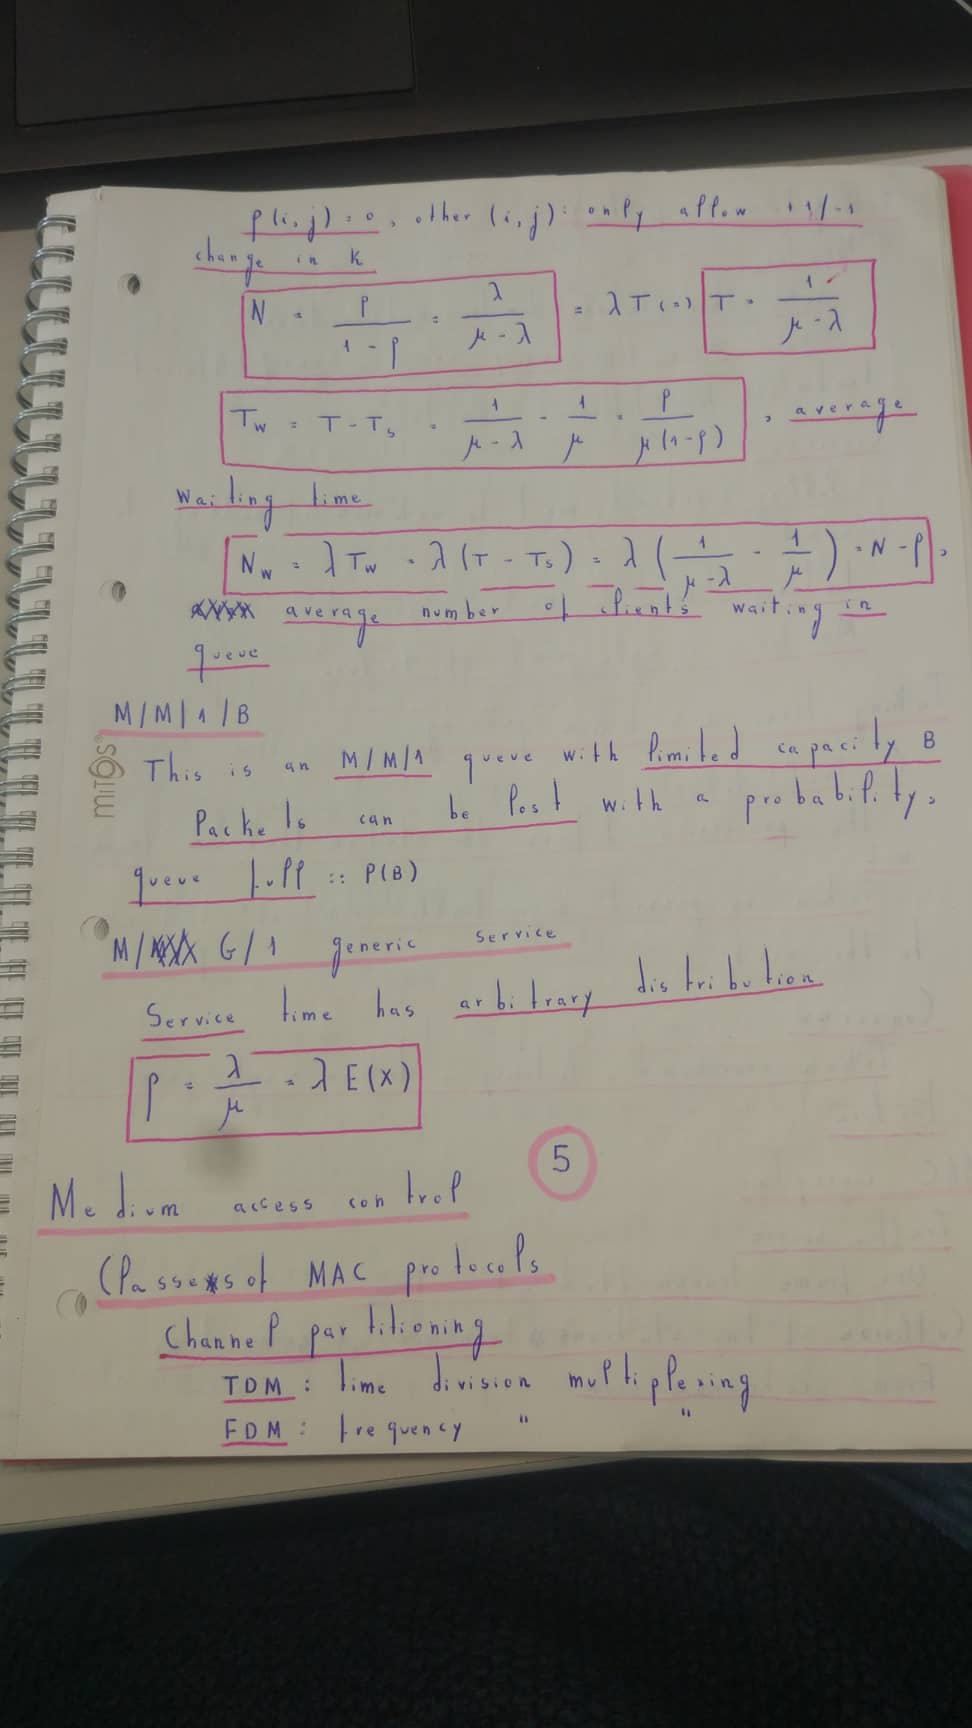 p(i,j) = 0, other (i,j): only allow +1/-1
change in k
N = ρ/(1-ρ) = λ/(μ-λ) = λT (=) T = 1/(μ-λ)
Tw = T - Ts = 1/(μ-λ) - 1/μ = ρ/(μ(1-ρ)), average
waiting time
Nw = λTw = λ(T - Ts) = λ(1/(μ-λ) - 1/μ) = N - ρ,
average number of clients waiting in
queue
M/M/1/B
This is an M/M/1 queue with limited capacity B
Packets can be lost with a probability,
queue full :: P(B)
M/G/1 generic service
Service time has arbitrary distribution
ρ = λ/μ = λE(X)
5
Medium access control
Classes of MAC protocols
Channel partitioning
TDM: time division multiplexing
FDM: frequency " "
MITOS